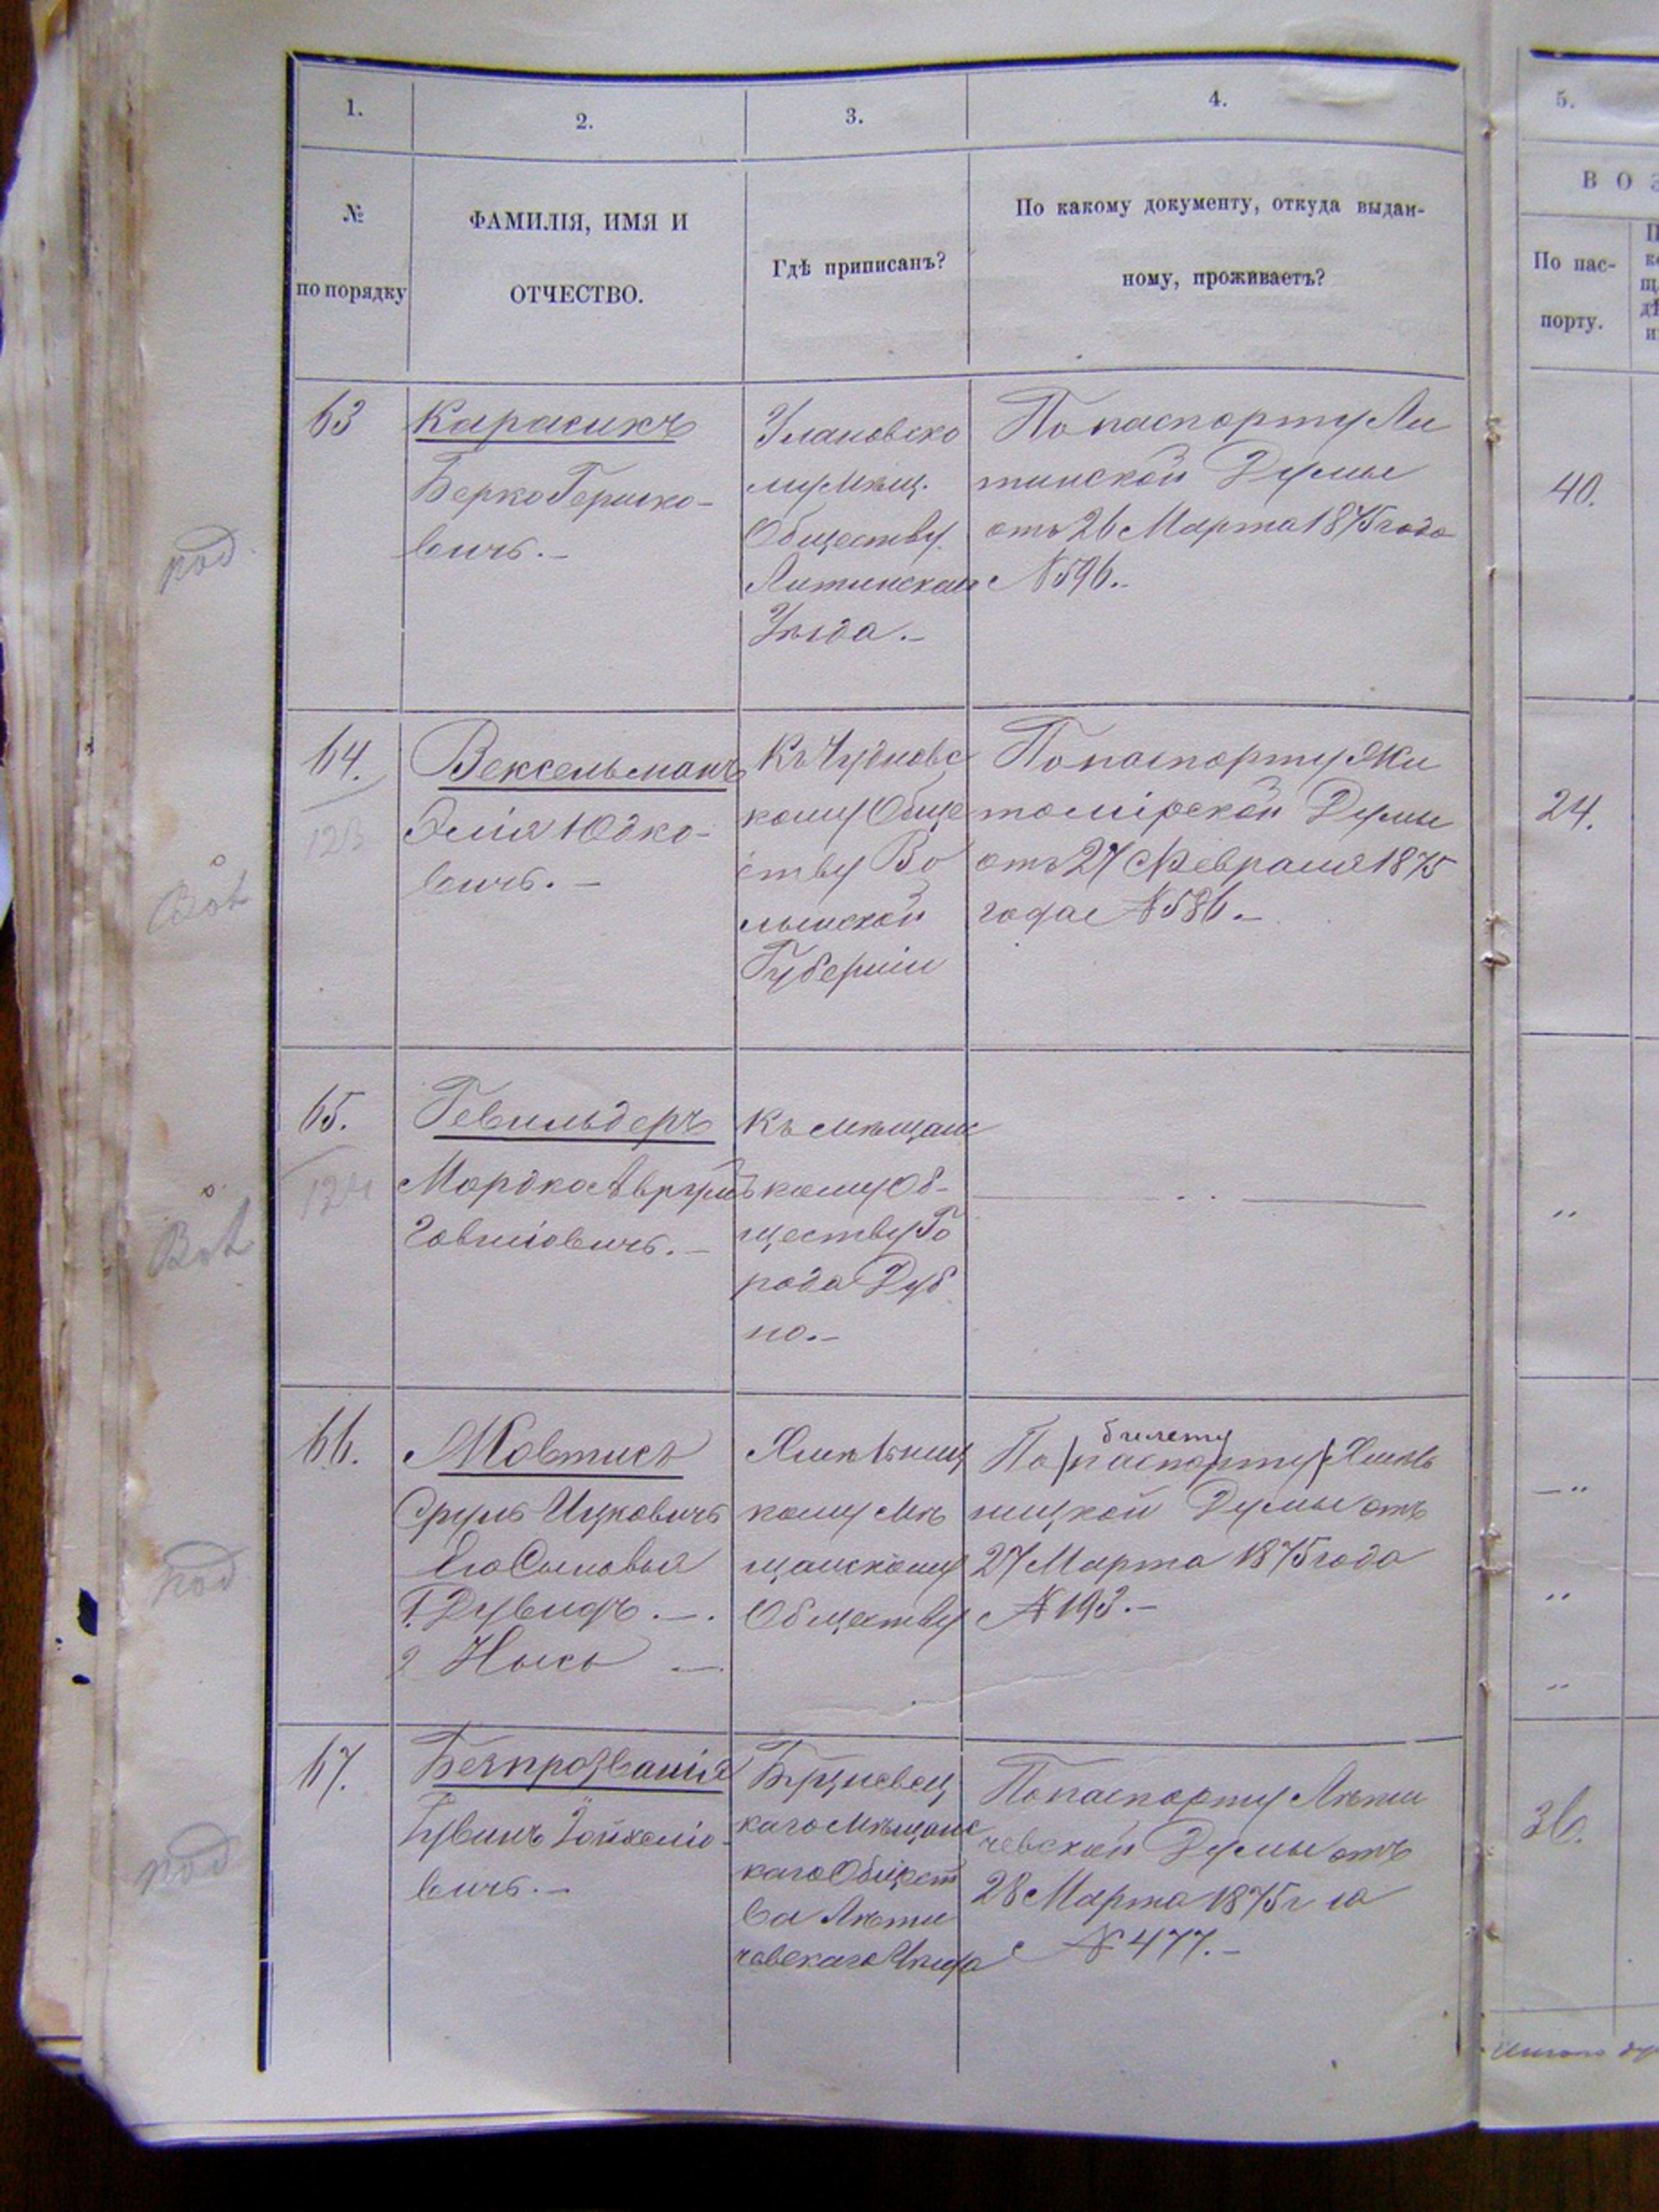 1.
2.
3.
4.
5.
№
по порядку
ФАМИЛІЯ, ИМЯ И
ОТЧЕСТВО.
Гдѣ приписанъ?
По какому документу, откуда выдан-
ному, проживаетъ?
ВОЗ
По пас-
порту.
63
Карасикъ
Берко Гершко-
вичъ.–
Улановско
му мѣщ.
Обществу.
Литинскаго
Уѣзда.–
По паспорту Ли
тинской Думы
отъ 26 Марта 1875 года
№ 596.–
40.
под
64.
123
Вексельманъ
Эліа Юдко-
вичъ.–
Къ Чудновс
кому Обще
ству Во
лынской
Губерніи
По паспорту Жи
томірской Думы
отъ 27 Февраля 1875
года № 586.–
24.
65.
124
Гевильдеръ
Мордко Аврумъ
Говшіовичъ.–
Къ мѣщанс
кому Об-
ществу Го
рода Дуб
но.–
66.
Жовтисъ
Сруль Ицковичъ
Его Сыновья
1. Дувидъ.–.
2 Нысь –
кому Мѣ
щанскому
Обществу
билету
По паспорту
ницкой Думы отъ
27 Марта 1875 года
№ 193.–
под
67.
Безпрозванія
вичъ.–
каго Мѣщанс
каго Общест
ва Лѣти
чевскаго Уѣзда
По паспорту Лѣти
чевской Думы отъ
28 Марта 1875 г
№ 477.–
36.
под